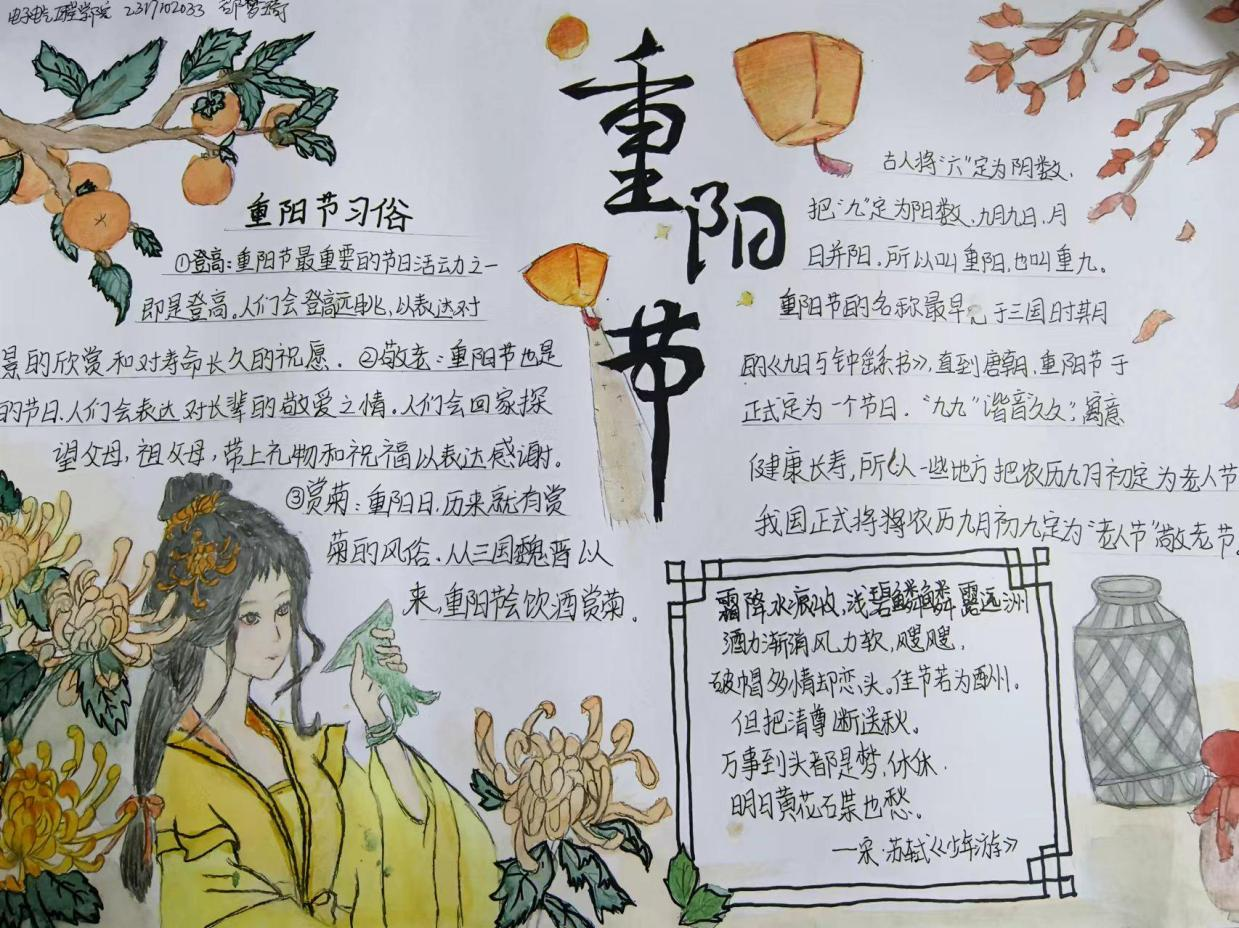 电子电气工程学院 231702033
重阳节
重阳节习俗
①登高：重阳节最重要的节日活动之一
即是登高。人们会登高远眺，以表达对
景的欣赏和对寿命长久的祝愿．②敬老：重阳节也是
的节日．人们会表达对长辈的敬爱之情．人们会回家探
望父母，祖父母，带上礼物和祝福以表达感谢．
③赏菊：重阳日．历来就有赏
菊的风俗．从三国魏晋以
来，重阳节会饮酒赏菊。
古人将“六”定为阴数．
把“九”定为阳数．九月九日．月
日并阳．所以叫重阳，也叫重九。
重阳节的名称最早 于三国时期月
的《九日与钟繇书》，直到唐朝．重阳节于
正式定为一个节日．“九九”谐音久久”，寓意
健康长寿，所以一些地方把农历九月初定为老人节
我国正式将将农历九月初九定为“老人节”敬老节。
霜降水痕收，浅碧鳞鳞露远洲
酒力渐消风力软，飕飕，
破帽多情却恋头。佳节若为酬州。
但把清尊断送秋。
万事到头都是梦，休休．
明日黄花 也愁。
—宋·苏轼《少年游》